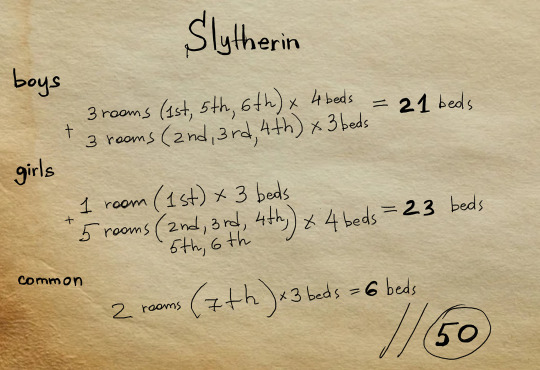 Slytherin
boys
3 rooms (1st, 5th, 6th) × 4 beds = 21 beds
+ 3 rooms (2nd, 3rd, 4th) × 3 beds
girls
1 room (1st) × 3 beds
+ 5 rooms (2nd, 3rd, 4th, 5th, 6th) × 4 beds = 23 beds
common
2 rooms (7th) × 3 beds = 6 beds
// 50